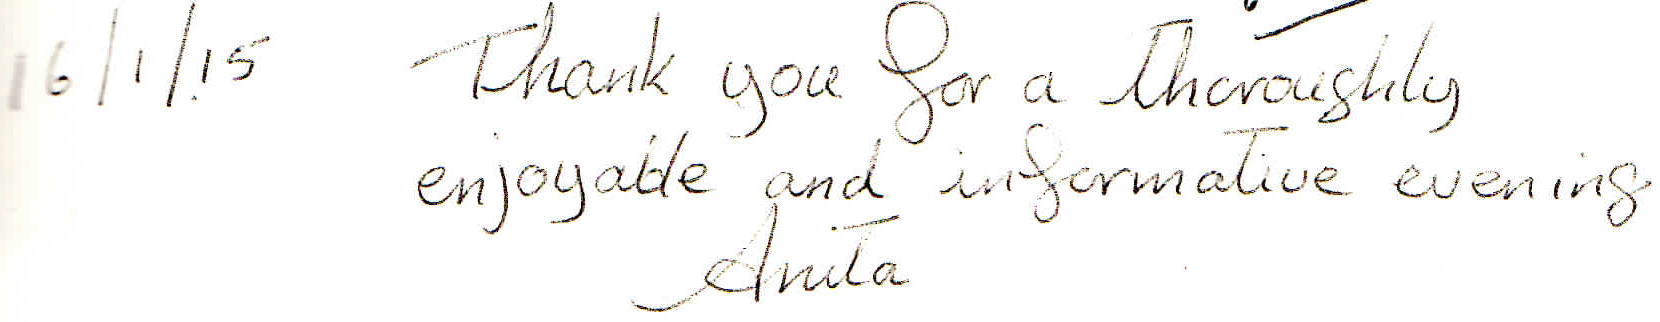 16/1/15 Thank you for a thoroughly
enjoyable and informative evening
Anita